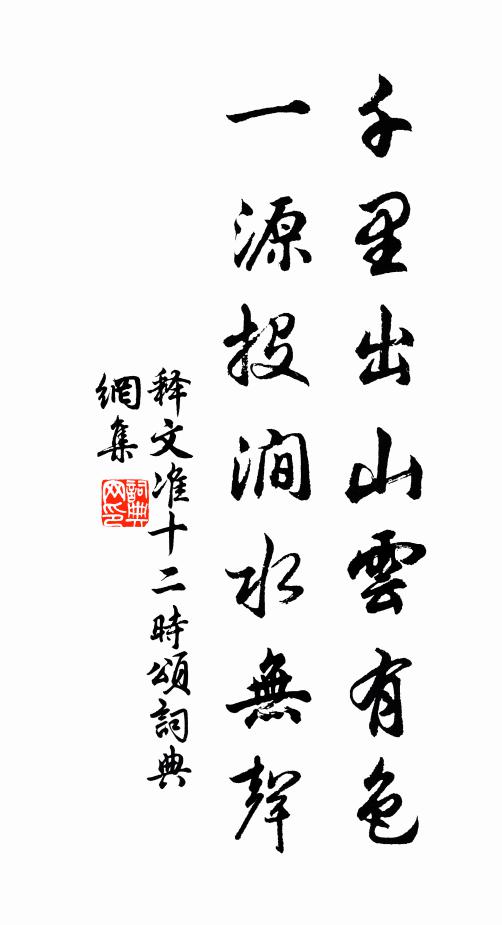 千里出山雲有色
一源投澗水無聲
释文准十二時頌詞典
網集
詞典
网印